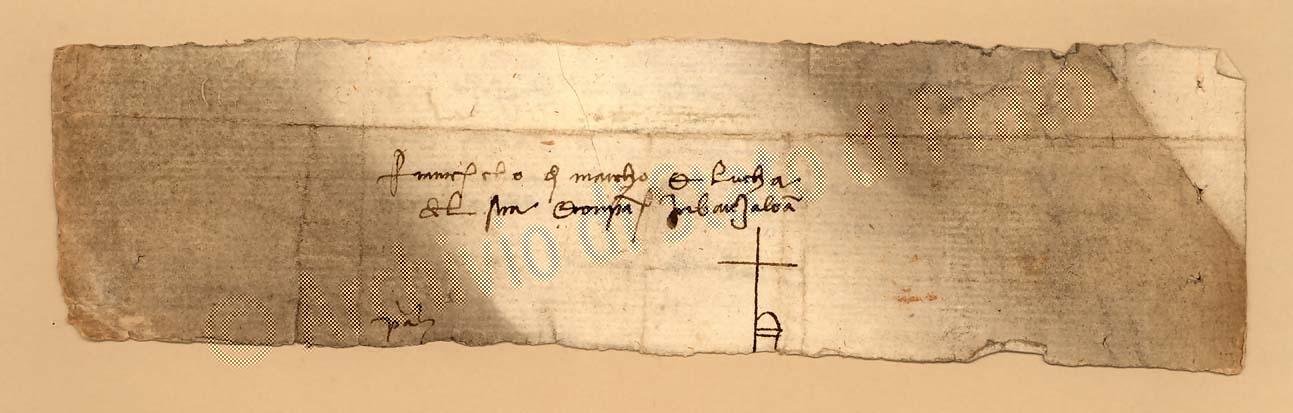 Francescho d marcho & lucha
del sera & conpa in barzalona
pa
© Archivio di Stato di Prato